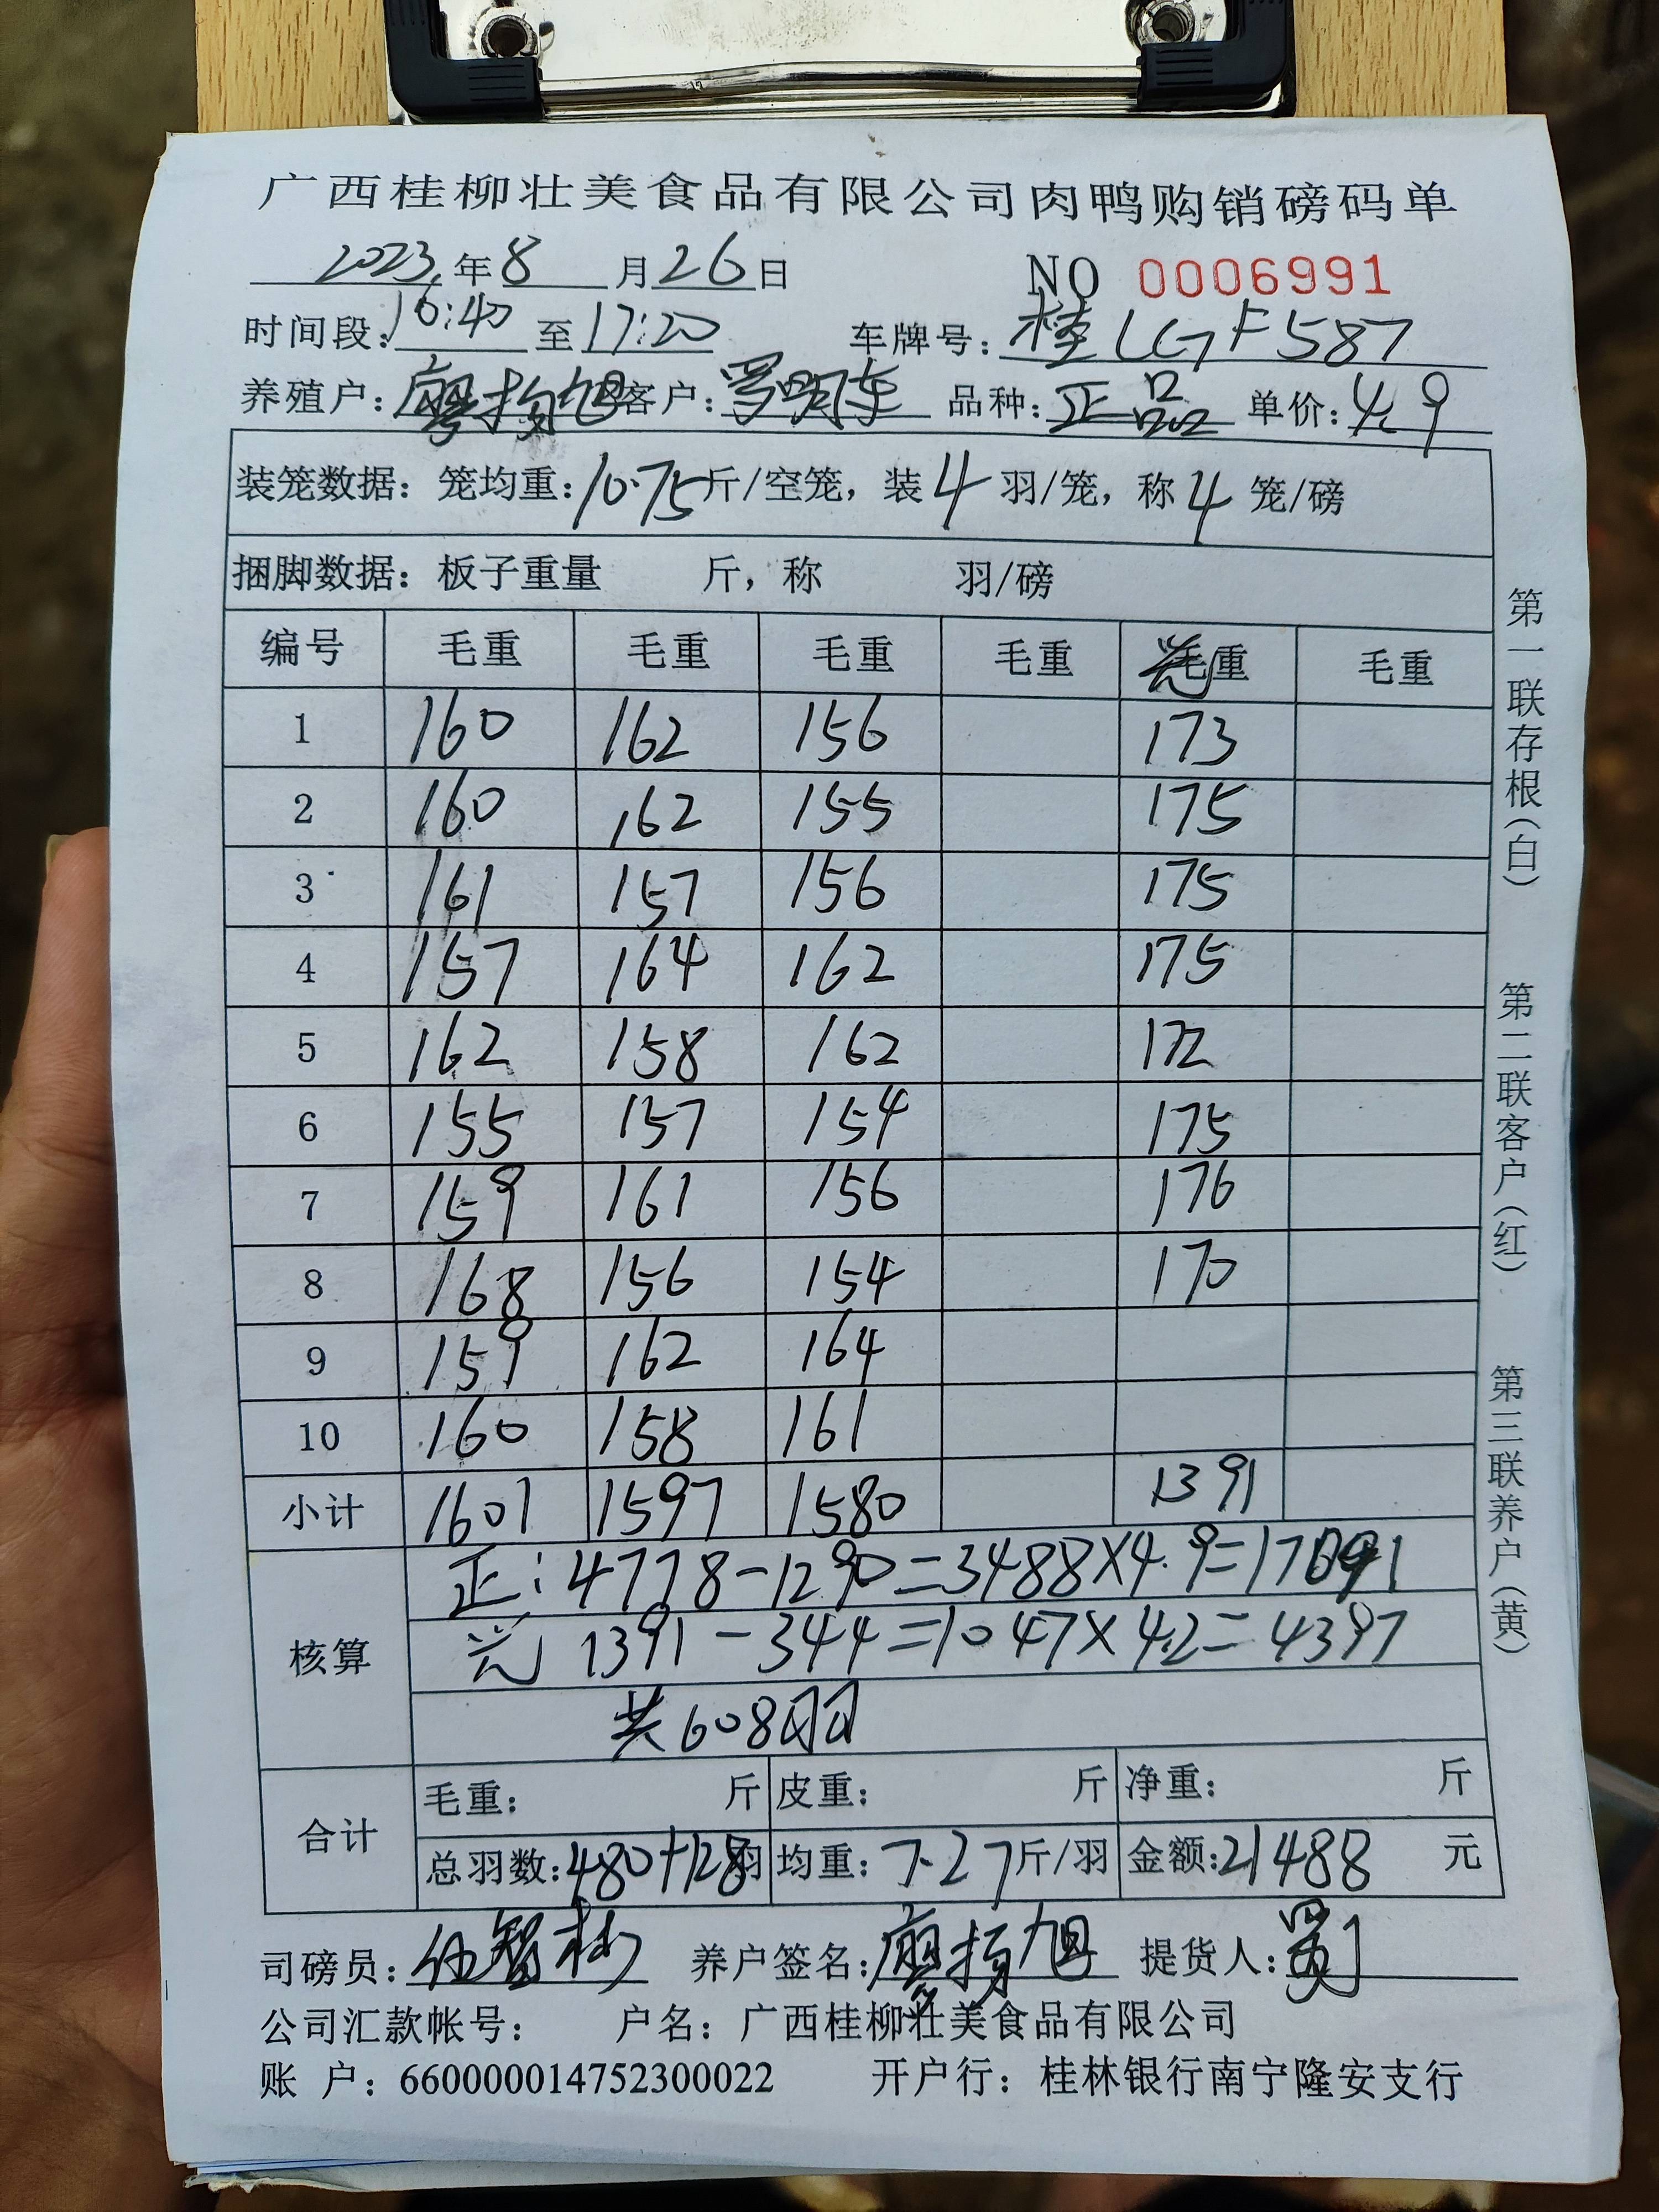 广西桂柳壮美食品有限公司肉鸭购销磅码单
2023 年 8 月 26 日 NO 0006991
时间段: 16:40 至 17:20 车牌号: 桂LGF587
养殖户: 廖扬旭 客户: 罗明东 品种: 正品 单价: 4.9
装笼数据: 笼均重: 10.75 斤/空笼, 装 4 羽/笼, 称 4 笼/磅
捆脚数据: 板子重量 斤, 称 羽/磅
编号 毛重 毛重 毛重 毛重 毛重 毛重
1 160 162 156 173
2 160 162 155 175
3 161 157 156 175
4 157 164 162 175
5 162 158 162 172
6 155 157 154 175
7 159 161 156 176
8 168 156 154 170
9 159 162 164
10 160 158 161
小计 1601 1597 1580 1391
核算
正: 4778-1290=3488×4.9=17091
1391-344=1047×4.2=4397
共608羽
合计
毛重: 斤 皮重: 斤 净重: 斤
总羽数: 480+128羽 均重: 7.27斤/羽 金额: 21488 元
司磅员: 养户签名: 廖扬旭 提货人:
公司汇款帐号: 户名: 广西桂柳壮美食品有限公司
账 户: 660000014752300022 开户行: 桂林银行南宁隆安支行
第一联存根(白) 第二联客户(红) 第三联养户(黄)